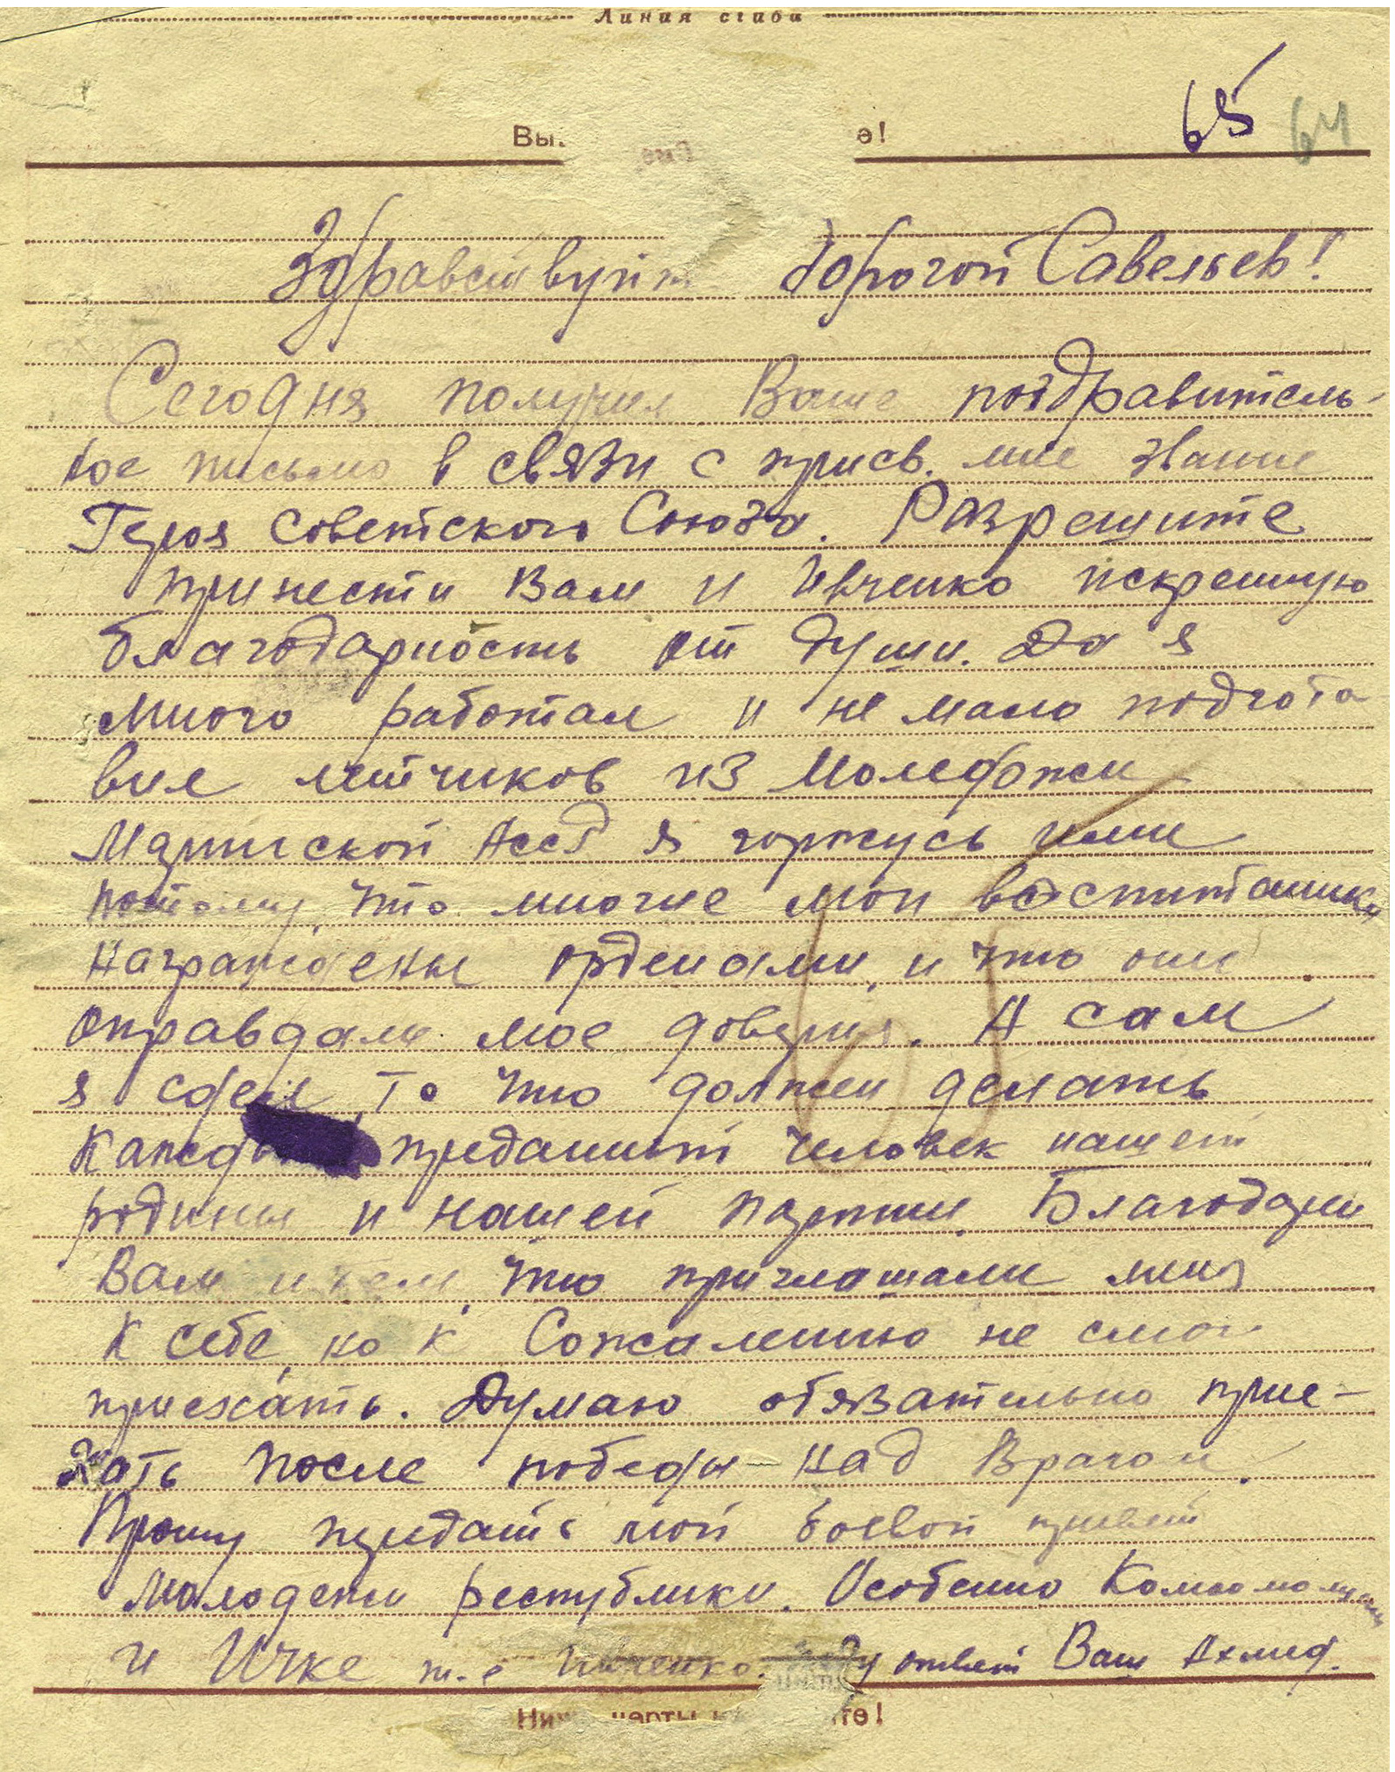 Линия сгиба
65 64
Здравствуйт дорогой Савельев!
Сегодня получил Ваше поздравитель-
ное письмо в связи с присв. мне звание
Героя Советского Союза. Разрешите
принести Вам и Ивченко искренную
благодарность от души. Да я
много работал и не мало подгота
вил летчиков из Молодежи
Марийской АССР я горжусь ими
потому, что многие мои воспитанники
награждены орденами, и что они
оправдали мое доверия. А сам
я сдел то что должен делать
кажды преданный человек нашей
родины и нашей партии. Благодарю
Вам и тем, что приглашали меня
к себе, но к Сожалению не смог
приехать. Думаю обязательно прие-
хать после победы над Врагом.
Прошу предать мой боевой привет
молодежи республики. Особенно Комсомольцам
и Ичке т.е Ивченко. Жду ответ Ваш Ахмед.